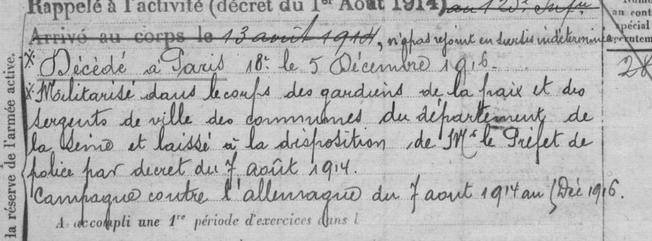 Rappelé à l'activité (décret du 1er Août 1914) au 125e Infie
Arrivé au corps le 13 août 1914, n'a pas rejoint en sursis indéterminé
* Décédé à Paris 18e le 5 Décembre 1916.
* Militarisé dans le corps des gardiens de la paix et des
sergents de ville des communes du département de
la Seine et laissé à la disposition de Mr le Préfet de
police par decret du 7 août 1914.
Campagne contre l'allemagne du 7 aout 1914 au 5 Déc 1916.
A accompli une 1re période d'exercices dans l
la réserve de l'armée active.
au cont
spécial
28